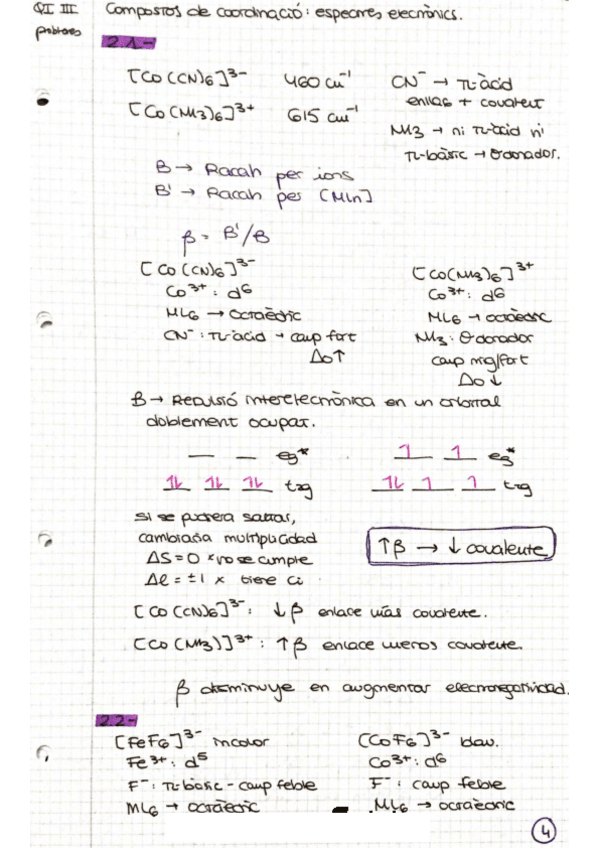 QI III problemes
Compostos de coordinació: espectres electrònics.
2.1-
[Co(CN)6]3- 460 cm-1 CN- → π-àcid
enllaç + covalent
[Co(NH3)6]3+ 615 cm-1
NH3 → ni π-àcid ni
π-bàsic → σ donador.
B → Racah per ions
B' → Racah per [MLn]
β = B'/B
[Co(CN)6]3-
Co3+: d6
ML6 → octaèdric
CN-: π-àcid → camp fort
Δo↑
[Co(NH3)6]3+
Co3+: d6
ML6 → octaèdric
NH3: σ donador
camp mig/fort
Δo↓
B → Repulsió interelectrònica en un orbital
doblement ocupat.
eg*
t2g
eg*
t2g
Si se pudiera saltar,
cambiaría multiplicidad
ΔS=0 × no se cumple
Δl = ±1 × tiene ci
↑β → ↓ covalente
[Co(CN)6]3-: ↓β enlace más covalente.
[Co(NH3)]3+: ↑β enlace menos covalente.
β disminuye en augmentar electronegatividad.
2.2-
[FeF6]3- incolor
Fe3+: d5
F-: π-bàsic - camp feble
ML6 → octaèdric
[CoF6]3- blau.
Co3+: d6
F-: camp feble
ML6 → octaèdric
4